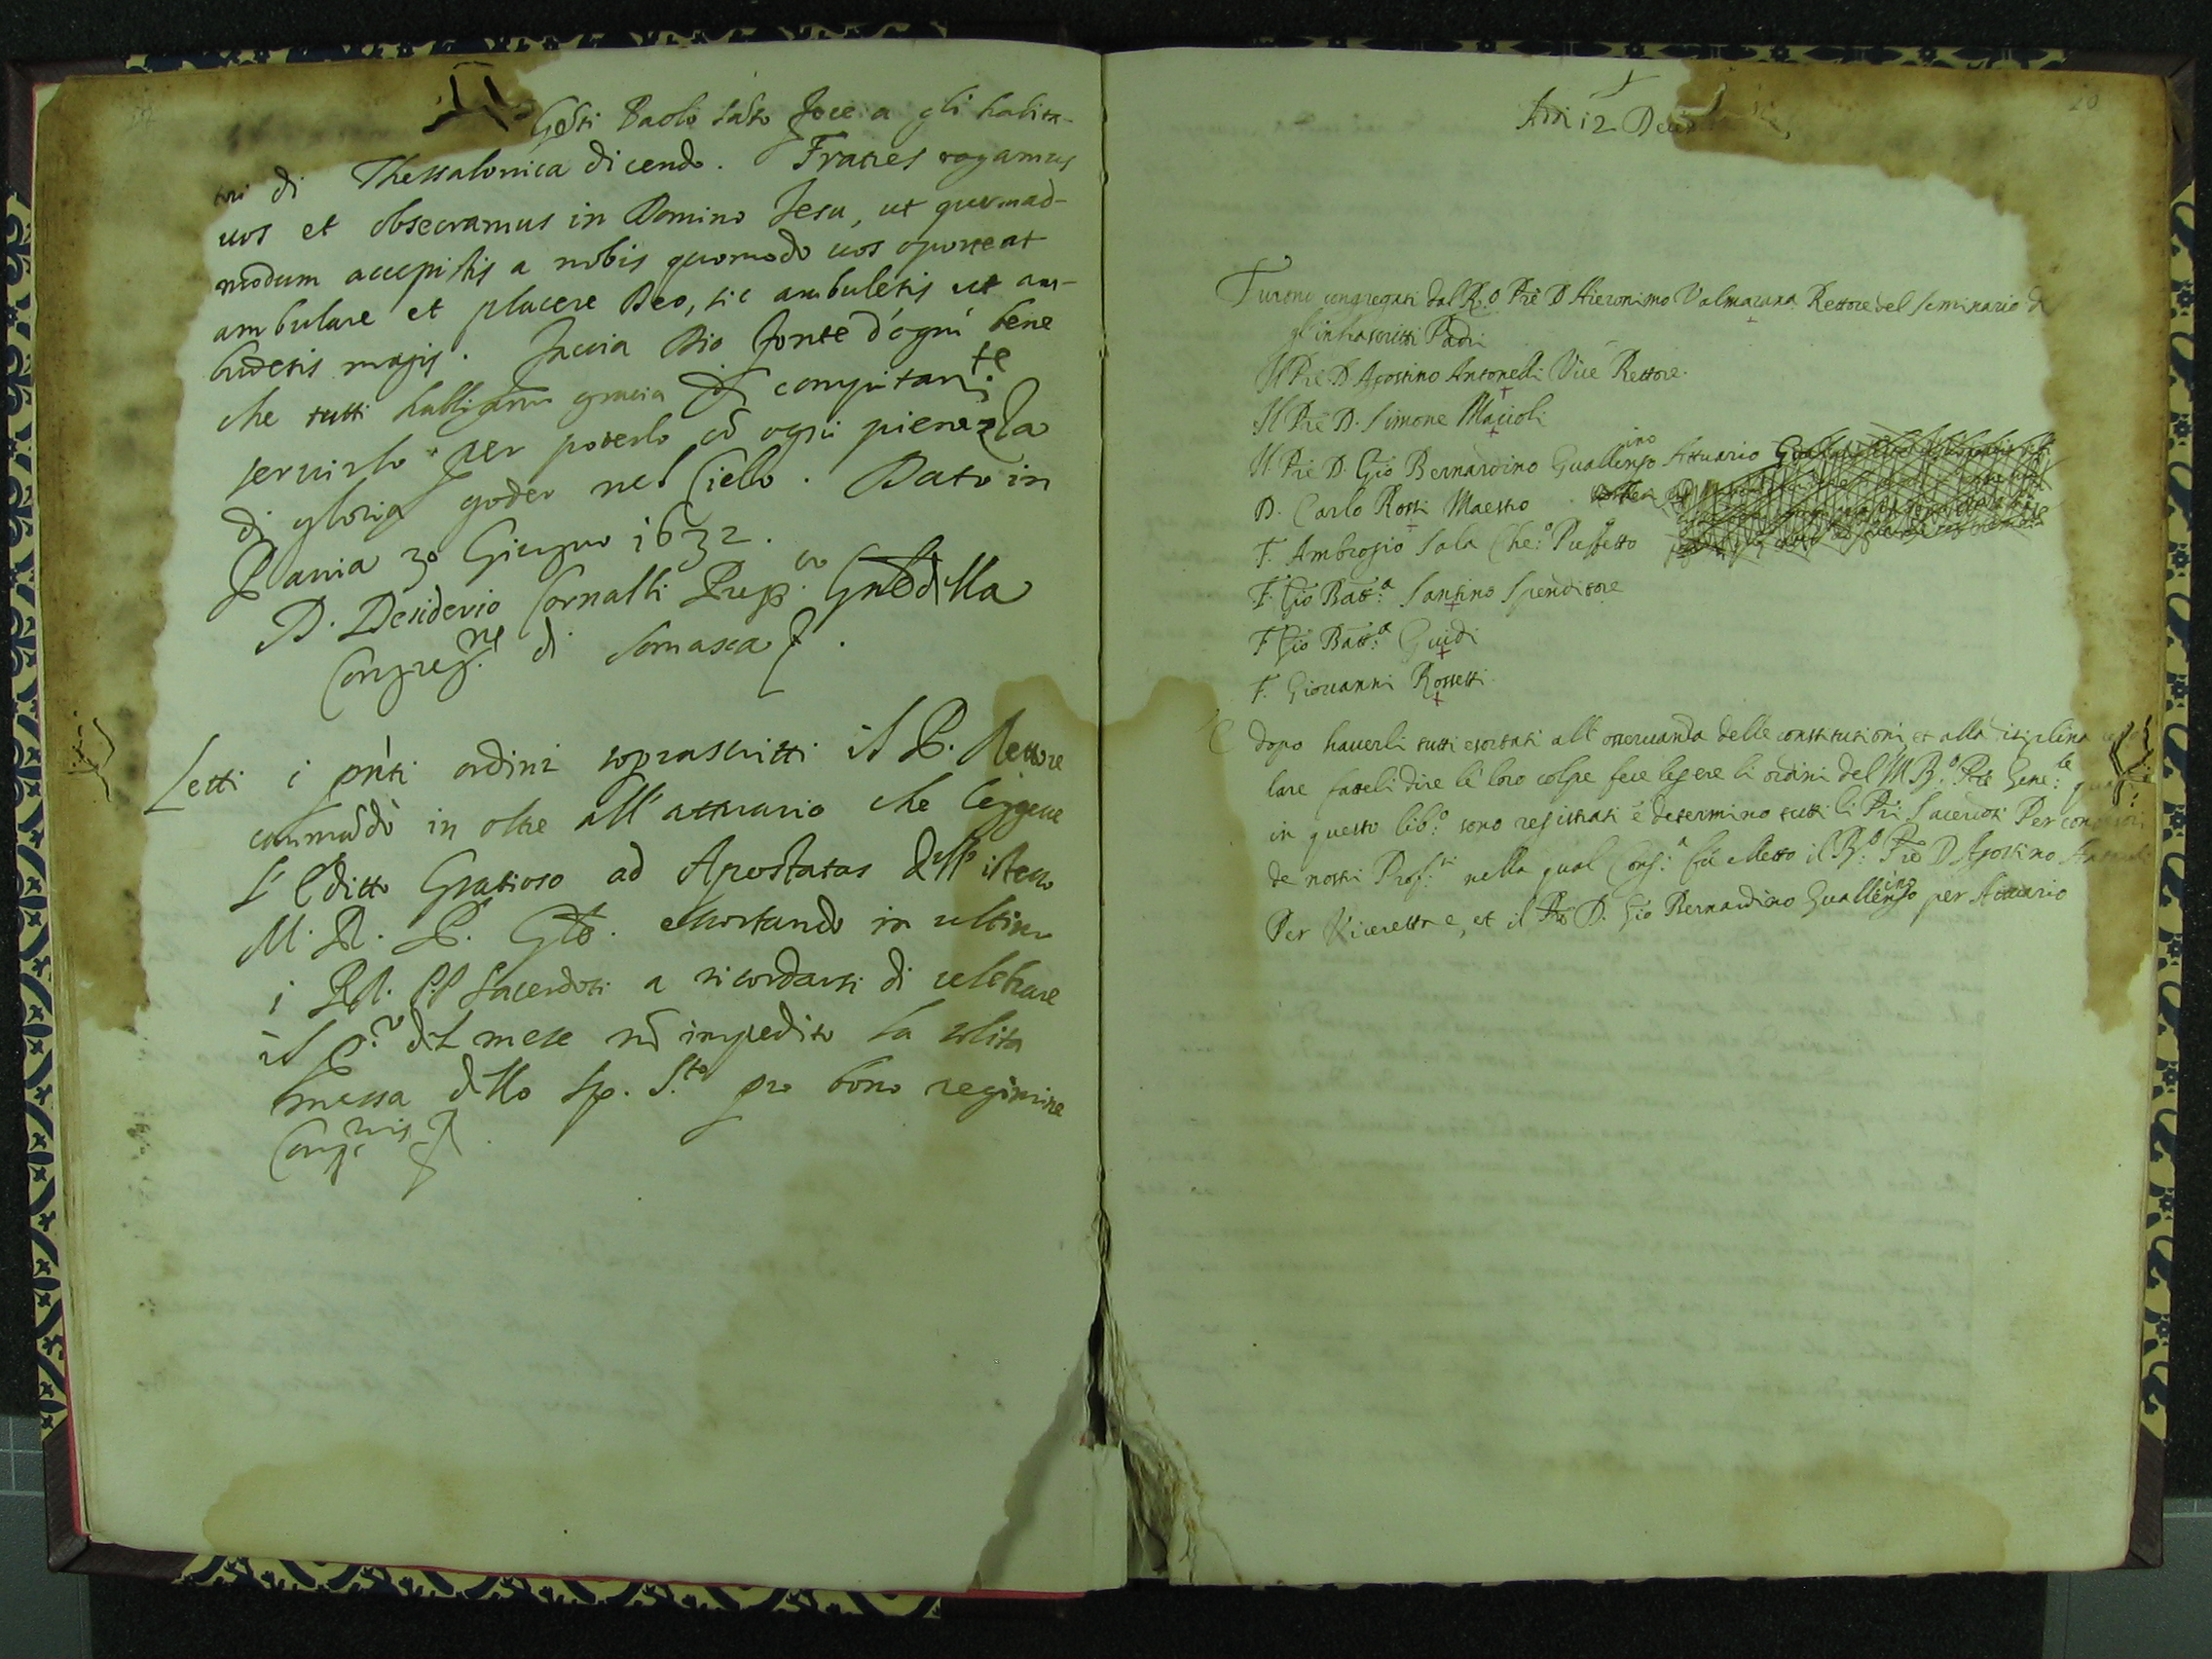 Paolo fece a gli habita-
tori di Thessalonica dicendo. Fratres rogamus
vos et obsecramus in Domino Jesu, ut quemad-
modum accepistis a nobis quomodo vos oporteat
ambulare et placere Deo, sic ambuletis ut abun-
detis magis. Faccia Dio fonte d'ogni bene
che tutti habbiamo gracia di compitamte
servirlo per poterlo cō ogni pienezza
di gloria goder nel Cielo. Dato in
Pavia 30 Giugno 1632.
D. Desiderio Cornalli Prep.to Gnāl della
Congreg.ne di Somasca
Letti i pn̄ti ordini soprascritti il P. Rettore
commādò in oltre all'attuario che leggere
l'Editto Gratioso ad Apostatas dell'istesso
M. R. P. Gñle. essortando in ultimo
i RR. PP Sacerdoti a ricordarsi di celebrare
il P.o del mese nō impedito la solita
messa dello Sp. S.to pro bono regimine
Cong.nis
Adi 12 Dece
20
Furono congregati dal R.o Prē D Hieronimo Valmarana Rettore del Seminario
gl'infrascritti Padri
Il Prē D. Agostino Antonelli Vice Rettore.
Il Prē D. Simone Macioli
Il Prē D. Gio Bernardino Guallengo ino Attuario
D. Carlo Rossi Maestro
F. Ambrosio Sala Che:o Preffetto
F. Gio Batt:a Santino Spenditore
F Gio Batt:a Guidi
F. Giovanni Rossetti
E dopo haverli tutti esortati all'osservanza delle constitutioni, et alla disiplina
lare fateli dire le loro colpe fece legere li ordini del M R.o Prē Gene:le
in questo lib:o sono registrati e determino tutti li Pri Sacerdoti Per
de nostri Prof:ti nella qual Cong:a fù eletto il R:o Prē D Agostino Antonelli
Per Vicerettore, et il Prē D. Gio Bernardino Guallengo ino per Attuario